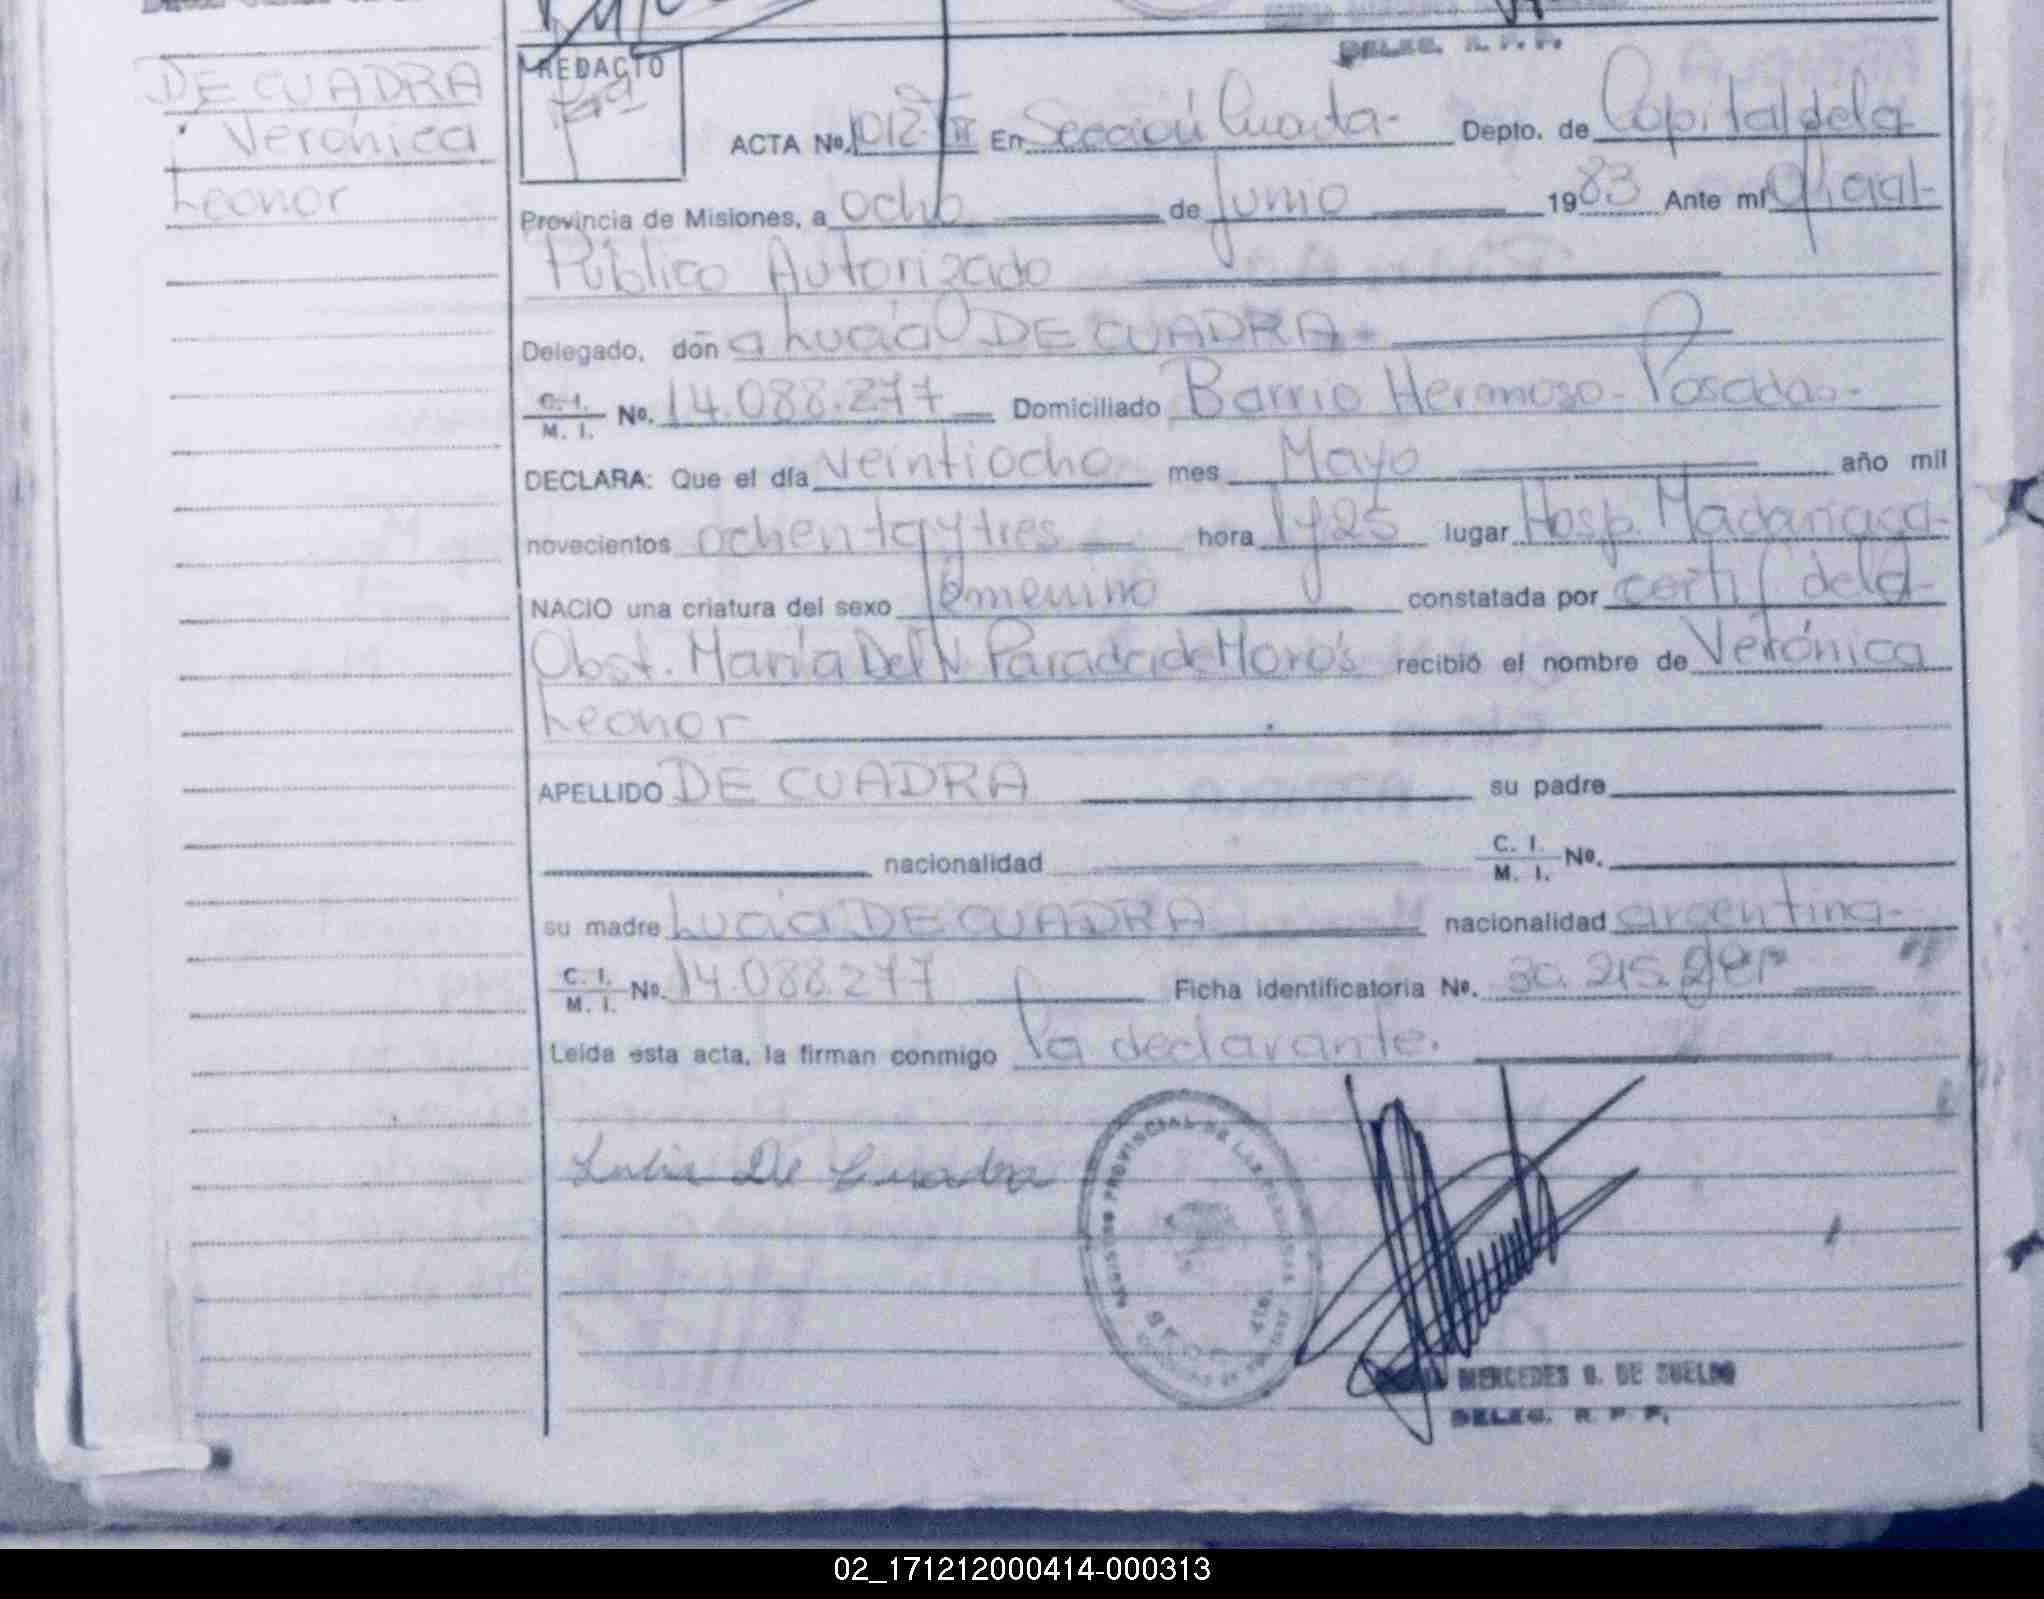 DELEG. R. P. P.
DE CUADRA
Verónica
Leonor
REDACTO
ACTA No. 1012-II En Sección Cuarta- Depto. de Capital de la
Provincia de Misiones, a ocho de Junio 1983 Ante mí Oficial-
Público Autorizado
Delegado, don a Lucia DE CUADRA-
C. I. M. I. No. 14.088.277 Domiciliado Barrio Hermoso-Posadas-
DECLARA: Que el día veintiocho mes Mayo año mil
novecientos ochenta y tres hora 1 y 25 lugar Hosp. Madariaga-
NACIO una criatura del sexo femenino constatada por certif de la-
Obst. María Del N. Parada de Moro's recibió el nombre de Verónica
Leonor
APELLIDO DE CUADRA su padre
nacionalidad C. I. M. I. No.
su madre Lucia DE CUADRA nacionalidad argentina-
C. I. M. I. No. 14.088.277 Ficha identificatoria No. 30.215.
Leída esta acta, la firman conmigo la declarante.
Lucia De Cuadra
REGISTRO PROVINCIAL DE LAS PERSONAS
MERCEDES G. DE ZUELDO
DELEG. R. P. P.
02_171212000414-000313